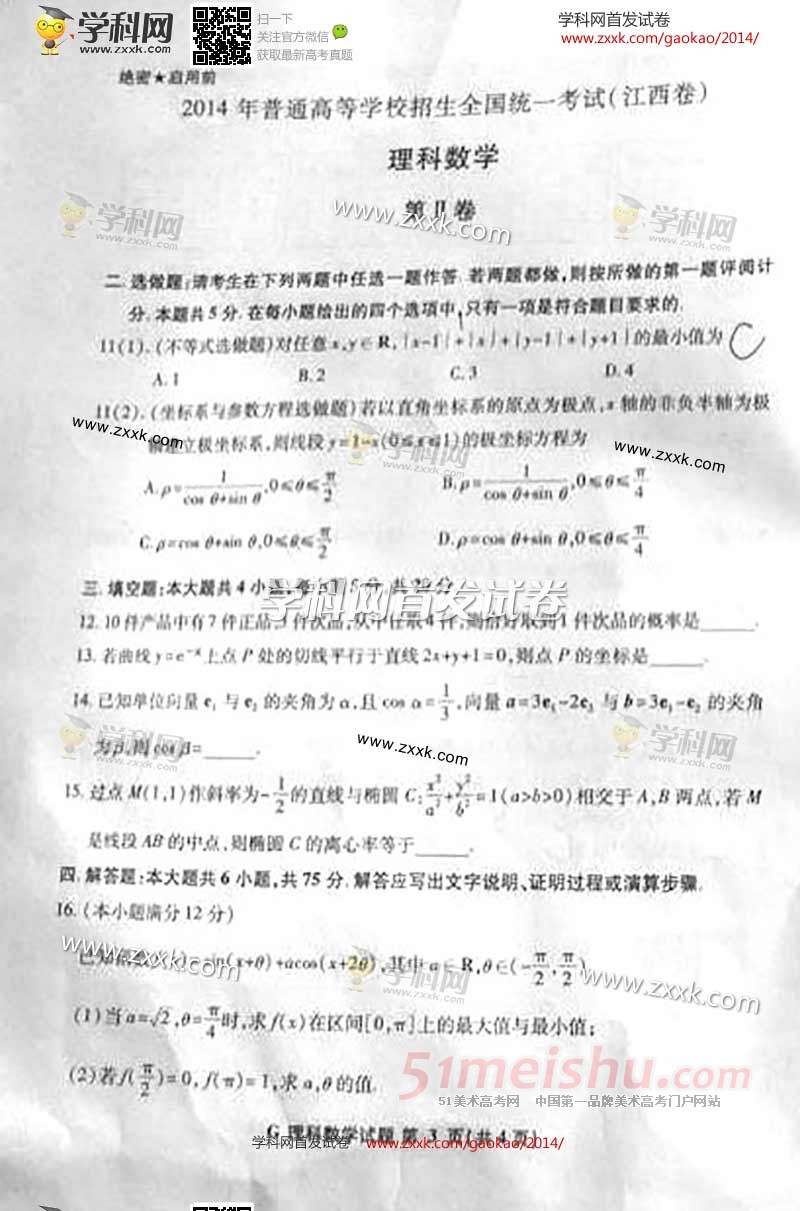 学科网
www.zxxk.com
扫一下
关注官方微信
获取最新高考真题
学科网首发试卷
www.zxxk.com/gaokao/2014/
绝密★启用前
2014年普通高等学校招生全国统一考试(江西卷)
理科数学
第Ⅱ卷
学科网
zxxk.com
www.zxxk.com
学科网
zxxk.com
二.选做题:请考生在下列两题中任选一题作答.若两题都做,则按所做的第一题评阅计
分.本题共5分.在每小题给出的四个选项中,只有一项是符合题目要求的.
11(1).(不等式选做题)对任意x,y∈R,|x-1|+|x|+|y-1|+|y+1|的最小值为 C
A.1 B.2 C.3 D.4
11(2).(坐标系与参数方程选做题)若以直角坐标系的原点为极点,x轴的非负半轴为极
轴建立极坐标系,则线段y=1-x(0≤x≤1)的极坐标方程为
www.zxxk.com
www.zxxk.com
A.ρ=1/(cos θ+sin θ),0≤θ≤π/2 B.ρ=1/(cos θ+sin θ),0≤θ≤π/4
C.ρ=cos θ+sin θ,0≤θ≤π/2 D.ρ=cos θ+sin θ,0≤θ≤π/4
三.填空题:本大题共4小题,每小题5分,共20分.
学科网首发试卷
12.10件产品中有7件正品,3件次品,从中任取4件,则恰好取到1件次品的概率是_____.
13.若曲线y=e⁻ˣ上点P处的切线平行于直线2x+y+1=0,则点P的坐标是_____.
14.已知单位向量e₁与e₂的夹角为α,且cos α=1/3,向量a=3e₁-2e₂与b=3e₁-e₂的夹角
为β,则cos β=_____.
学科网
zxxk.com
www.zxxk.com
学科网
zxxk.com
15.过点M(1,1)作斜率为-1/2的直线与椭圆C:x²/a²+y²/b²=1(a>b>0)相交于A,B两点,若M
是线段AB的中点,则椭圆C的离心率等于_____.
四.解答题:本大题共6小题,共75分.解答应写出文字说明、证明过程或演算步骤.
16.(本小题满分12分)
已知函数 sin(x+θ)+acos(x+2θ),其中a∈R,θ∈(-π/2,π/2).
www.zxxk.com
学科网
zxxk.com
www.zxxk.com
(1)当a=√2,θ=π/4时,求f(x)在区间[0,π]上的最大值与最小值;
(2)若f(π/2)=0,f(π)=1,求a,θ的值.
51meishu.com
51美术高考网 中国第一品牌美术高考门户网站
G 理科数学试题 第 3 页(共4页)
学科网首发试卷 www.zxxk.com/gaokao/2014/